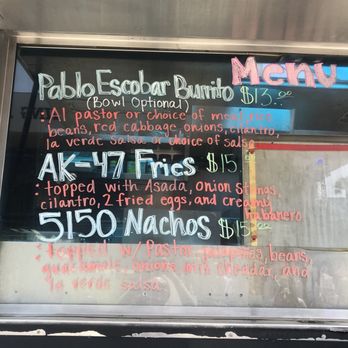 Menu
Pablo Escobar Burrito $13.00
(Bowl Optional)
: Al pastor or choice of meat, rice,
beans, red cabbage, onions, cilantro,
la verde salsa or choice of salsa
AK-47 Fries $15.
: topped with Asada, onion strings,
cilantro, 2 fried eggs, and creamy
habanero
5150 Nachos $15.00
: topped w/ Pastor, beans,
onions, cheddar, and
la verde salsa